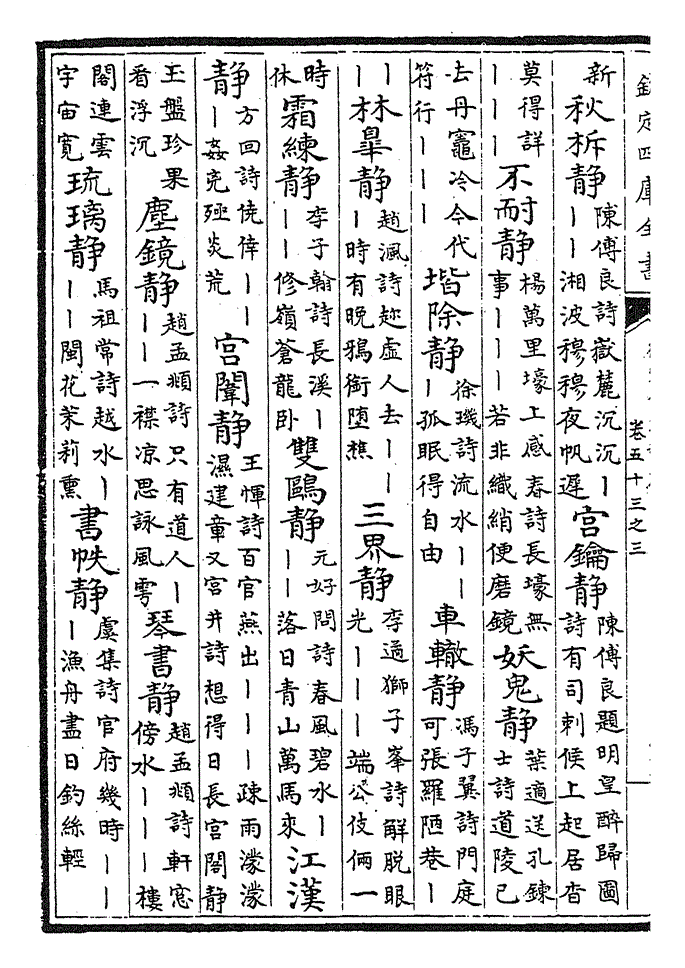 欽定四庫全書
卷五十三之三
新秋柝静陳傅良詩嶽麓沉沉丨丨丨湘波穆穆夜帆遲宫鑰静陳傅良題明皇醉歸圖詩有司刺候上起居杳
莫得詳丨丨丨不耐静楊萬里壕上感春詩長壕無事丨丨丨若非織綃便磨鏡妖鬼静葉適送孔鍊士詩道陵已
去丹竈冷今代符行丨丨丨堦除静徐璣詩流水丨丨丨孤眠得自由車轍静馮子翼詩門庭可張羅陋巷丨
丨丨林臯静趙渢詩趂虚人去丨丨丨時有晚鴉銜墮樵三界静李過獅子峯詩解脱眼光丨丨丨端公伎俩一
時休霜練静李子翰詩長溪丨丨丨修嶺蒼龍卧雙鷗静元好問詩春風碧水丨丨丨落日青山萬馬來江漢
静方回詩僥倖丨丨丨姦兇殛炎荒宫闈静王惲詩百官燕出丨丨丨疎雨濛濛濕建章又宫井詩想得日長宫閣静
玉盤珍果看浮沉塵鏡静趙孟頫詩只有道人丨丨丨一襟凉思詠風雩琴書静趙孟頫詩軒窓傍水丨丨丨樓
閣連雲宇宙寛琉璃静馬祖常詩越水丨丨丨閩花茉莉熏書帙静虞集詩官府幾時丨丨丨漁舟盡日釣絲輕